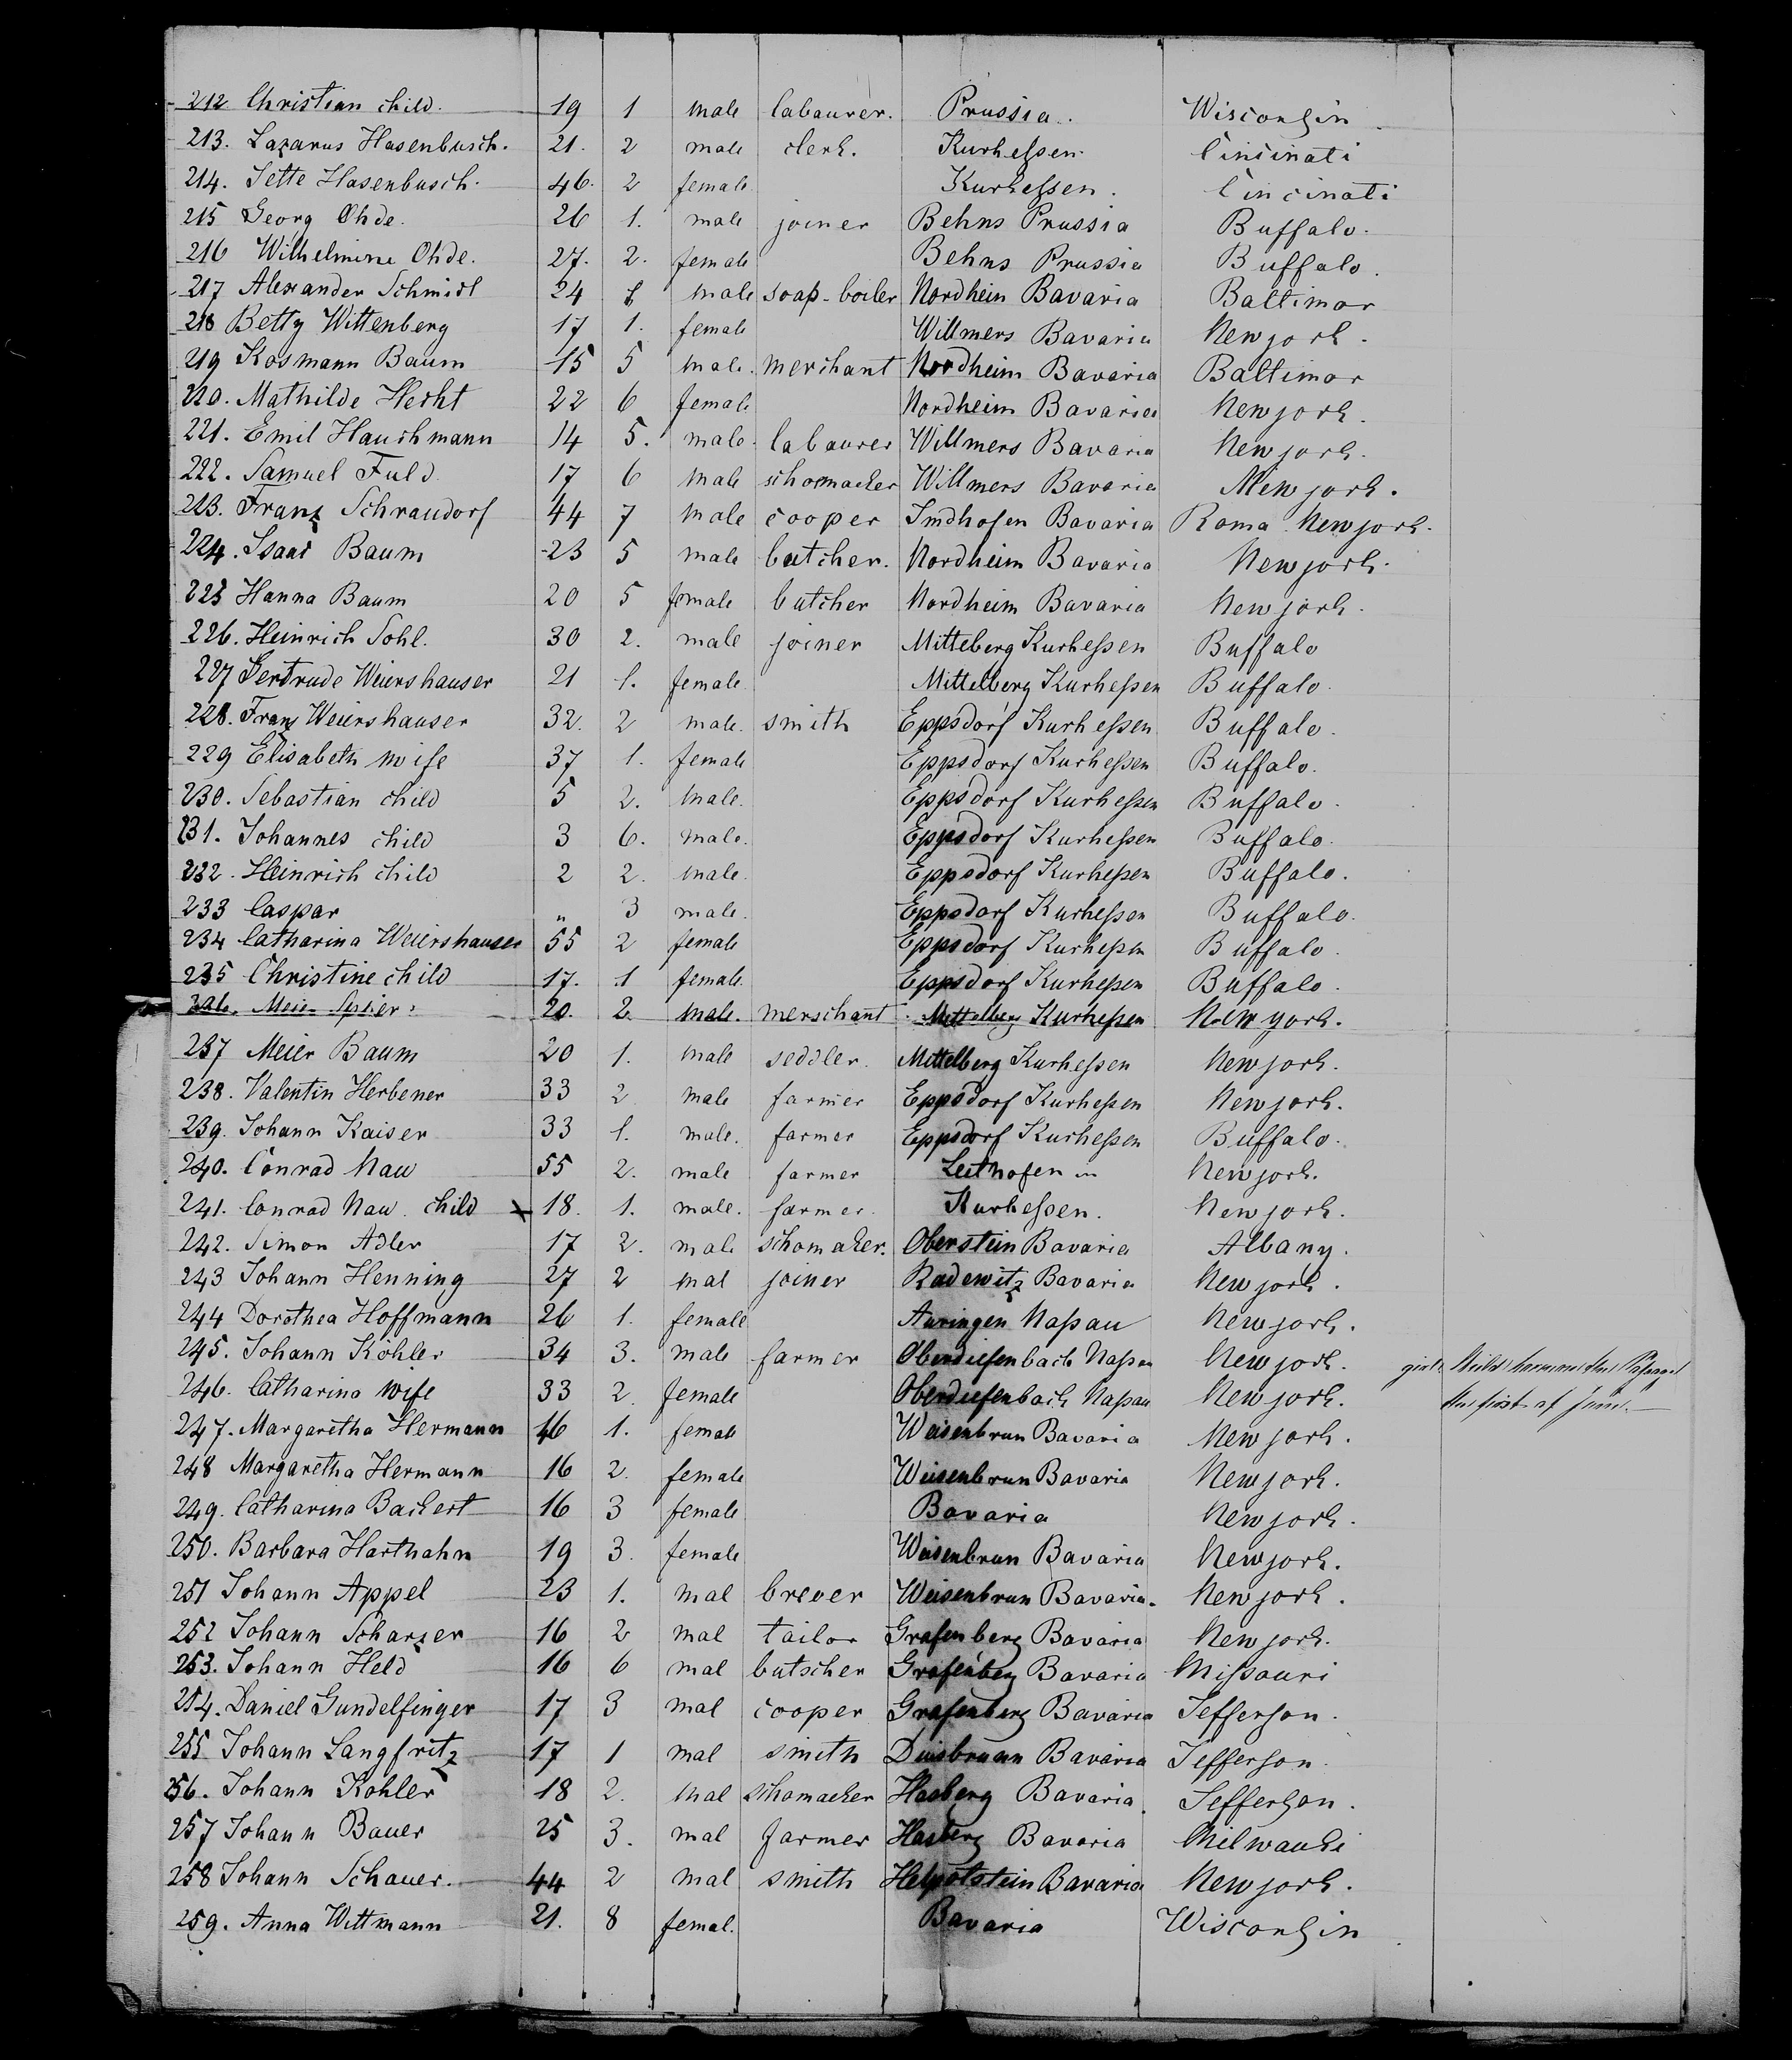 212 Christian child. 19 1 male labaurer. Prussia. Wisconsin
213. Lazarus Hasenbusch. 21. 2 male clerk. Kurheßen Cincinati
214. Jette Hasenbusch. 46. 2 female Kurheßen. Cincinati
215 Georg Ohde. 26 1. male joiner Behns Prussia Buffalo.
216 Wilhelmine Ohde. 27. 2. female Behns Prussia Buffalo.
217 Alexander Schmidt 24 1 male soap-boiler Nordhein Bavaria Baltimor
218 Betty Wittenberg 17 1. female Willmers Bavaria Newjork.
219 Kosmann Baum 15 5 male. merchant Nordheim Bavaria Baltimor
220. Mathilde Hecht 22 6 female Nordheim Bavaria Newjork.
221. Emil Hauchmann 14 5. male. labaurer Willmers Bavaria Newjork.
222. Samuel Fuld 17 6 male schomacker Willmers Bavaria Newjork.
223. Franz Schraudorf 44 7 male cooper Bavaria Roma Newjork.
224. Isaac Baum 23 5 male butcher. Nordheim Bavaria Newjork.
225 Hanna Baum 20 5 female butcher Nordheim Bavaria Newjork.
226. Heinrich Sohl. 30 2. male joiner Mitteberg Kurheßen Buffalo
227 Gertrude Weiershauser 21 1. female Mittelberg Kurheßen Buffalo.
228. Franz Weiershauser 32. 2 male. smith Eppsdorf Kurheßen Buffalo.
229 Elisabeth wife 37 1. female Eppsdorf Kurheßen Buffalo.
230. Sebastian child 5 2. male. Eppsdorf Kurheßen Buffalo.
231. Johannes child 3 6. male. Eppsdorf Kurheßen Buffalo.
232. Heinrich child 2 2. male. Eppsdorf Kurheßen Buffalo.
233 Caspar " 3 male. Eppsdorf Kurheßen Buffalo.
234 Catharina Weiershauser 55 2 female Eppsdorf Kurheßen Buffalo.
235 Christine child 17. 1 female. Eppsdorf Kurheßen Buffalo.
236. Meier 20. 2 male. merschant Mittelberg Kurheßen New york.
237 Meier Baum 20 1. male seddler. Mittelberg Kurheßen Newjork.
238. Valentin Herbener 33 2 male farmer Eppsdorf Kurheßen Newjork.
239. Johann Kaiser 33 1. male. farmer Eppsdorf Kurheßen Buffalo.
240. Conrad Nau 55 2. male farmer Leithofen in Newjork.
241. Conrad Nau child 18. 1. male. farmer. Kurheßen. Newjork.
242. Simon Adler 17 2. male schomaker. Oberstein Bavaria Albany.
243 Johann Henning 27 2 mal joiner Radewitz Bavaria Newjork.
244 Dorothea Hoffmann 26 1. female Auringen Naßau Newjork.
245. Johann Köhler 34 3. male farmer Oberdiefenbach Naßau Newjork.
246. Catharina wife 33 2 female Oberdiefenbach Naßau Newjork. the first of June.
247. Margaretha Hermann 46 1. female Weisenbrun Bavaria Newjork.
248 Margaretha Hermann 16 2. female Weisenbrun Bavaria Newjork.
249. Catharina Backert 16 3 female Bavaria Newjork.
250. Barbara Harthahn 19 3. female Weisenbrun Bavaria Newjork.
251 Johann Appel 23 1. mal brever Weisenbrun Bavaria. Newjork.
252 Johann Scharzer 16 2 mal tailor Grafenberg Bavaria Newjork.
253. Johann Held 16 6 mal butscher Grafenberg Bavaria Mißouri
254. Daniel Gundelfinger 17 3 mal cooper Grafenberg Bavaria Jefferson.
255 Johann Langfritz 17 1 mal smith Duisbrunn Bavaria Jefferson.
256. Johann Köhler 18 2. mal schomacker Hasberg Bavaria Jefferson.
257 Johann Bauer 25 3. mal farmer Hasberg Bavaria Milwauki
258 Johann Schauer. 44 2 mal smith Helpotstein Bavaria Newjork.
259. Anna Wittmann 21. 8 femal. Bavaria Wisconsin